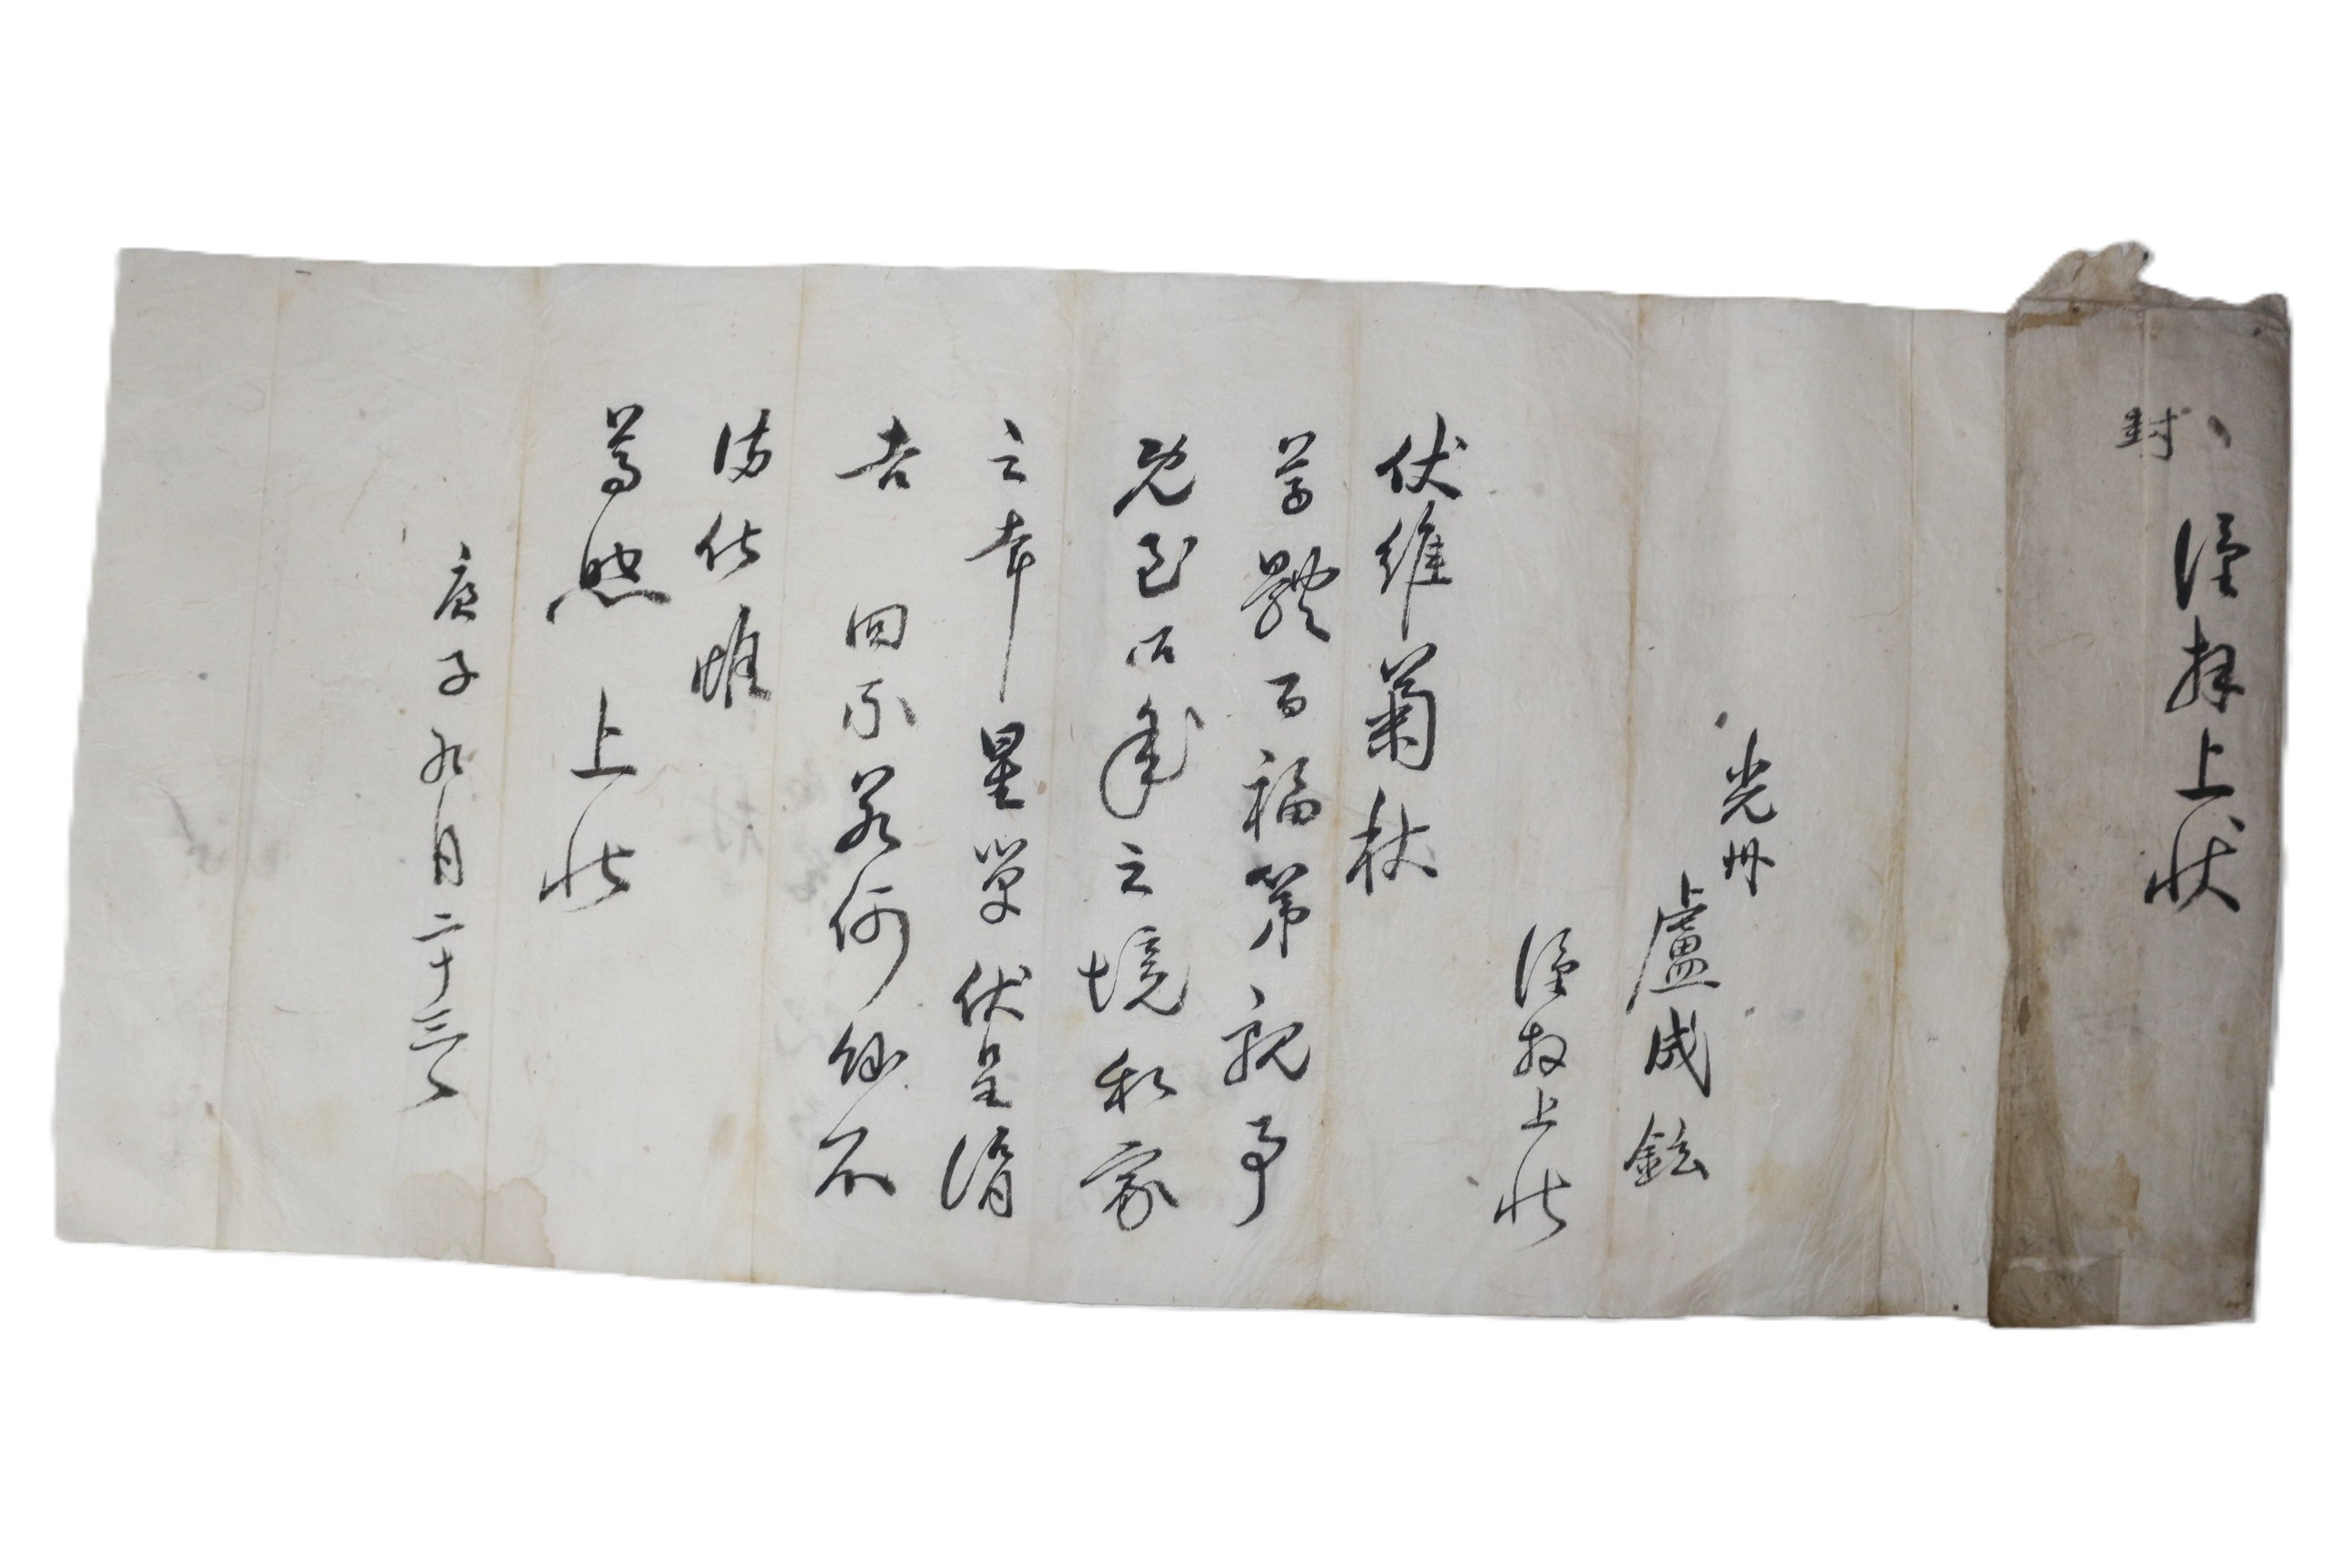 封
謹拜上狀
光州
盧成鉉
謹拜上狀
伏維菊秋
尊體百福第親事
既至之境私家
之幸 星單伏呈涓
吉 回示若何餘不
備伏惟
尊照 上狀
庚子九月二十三日